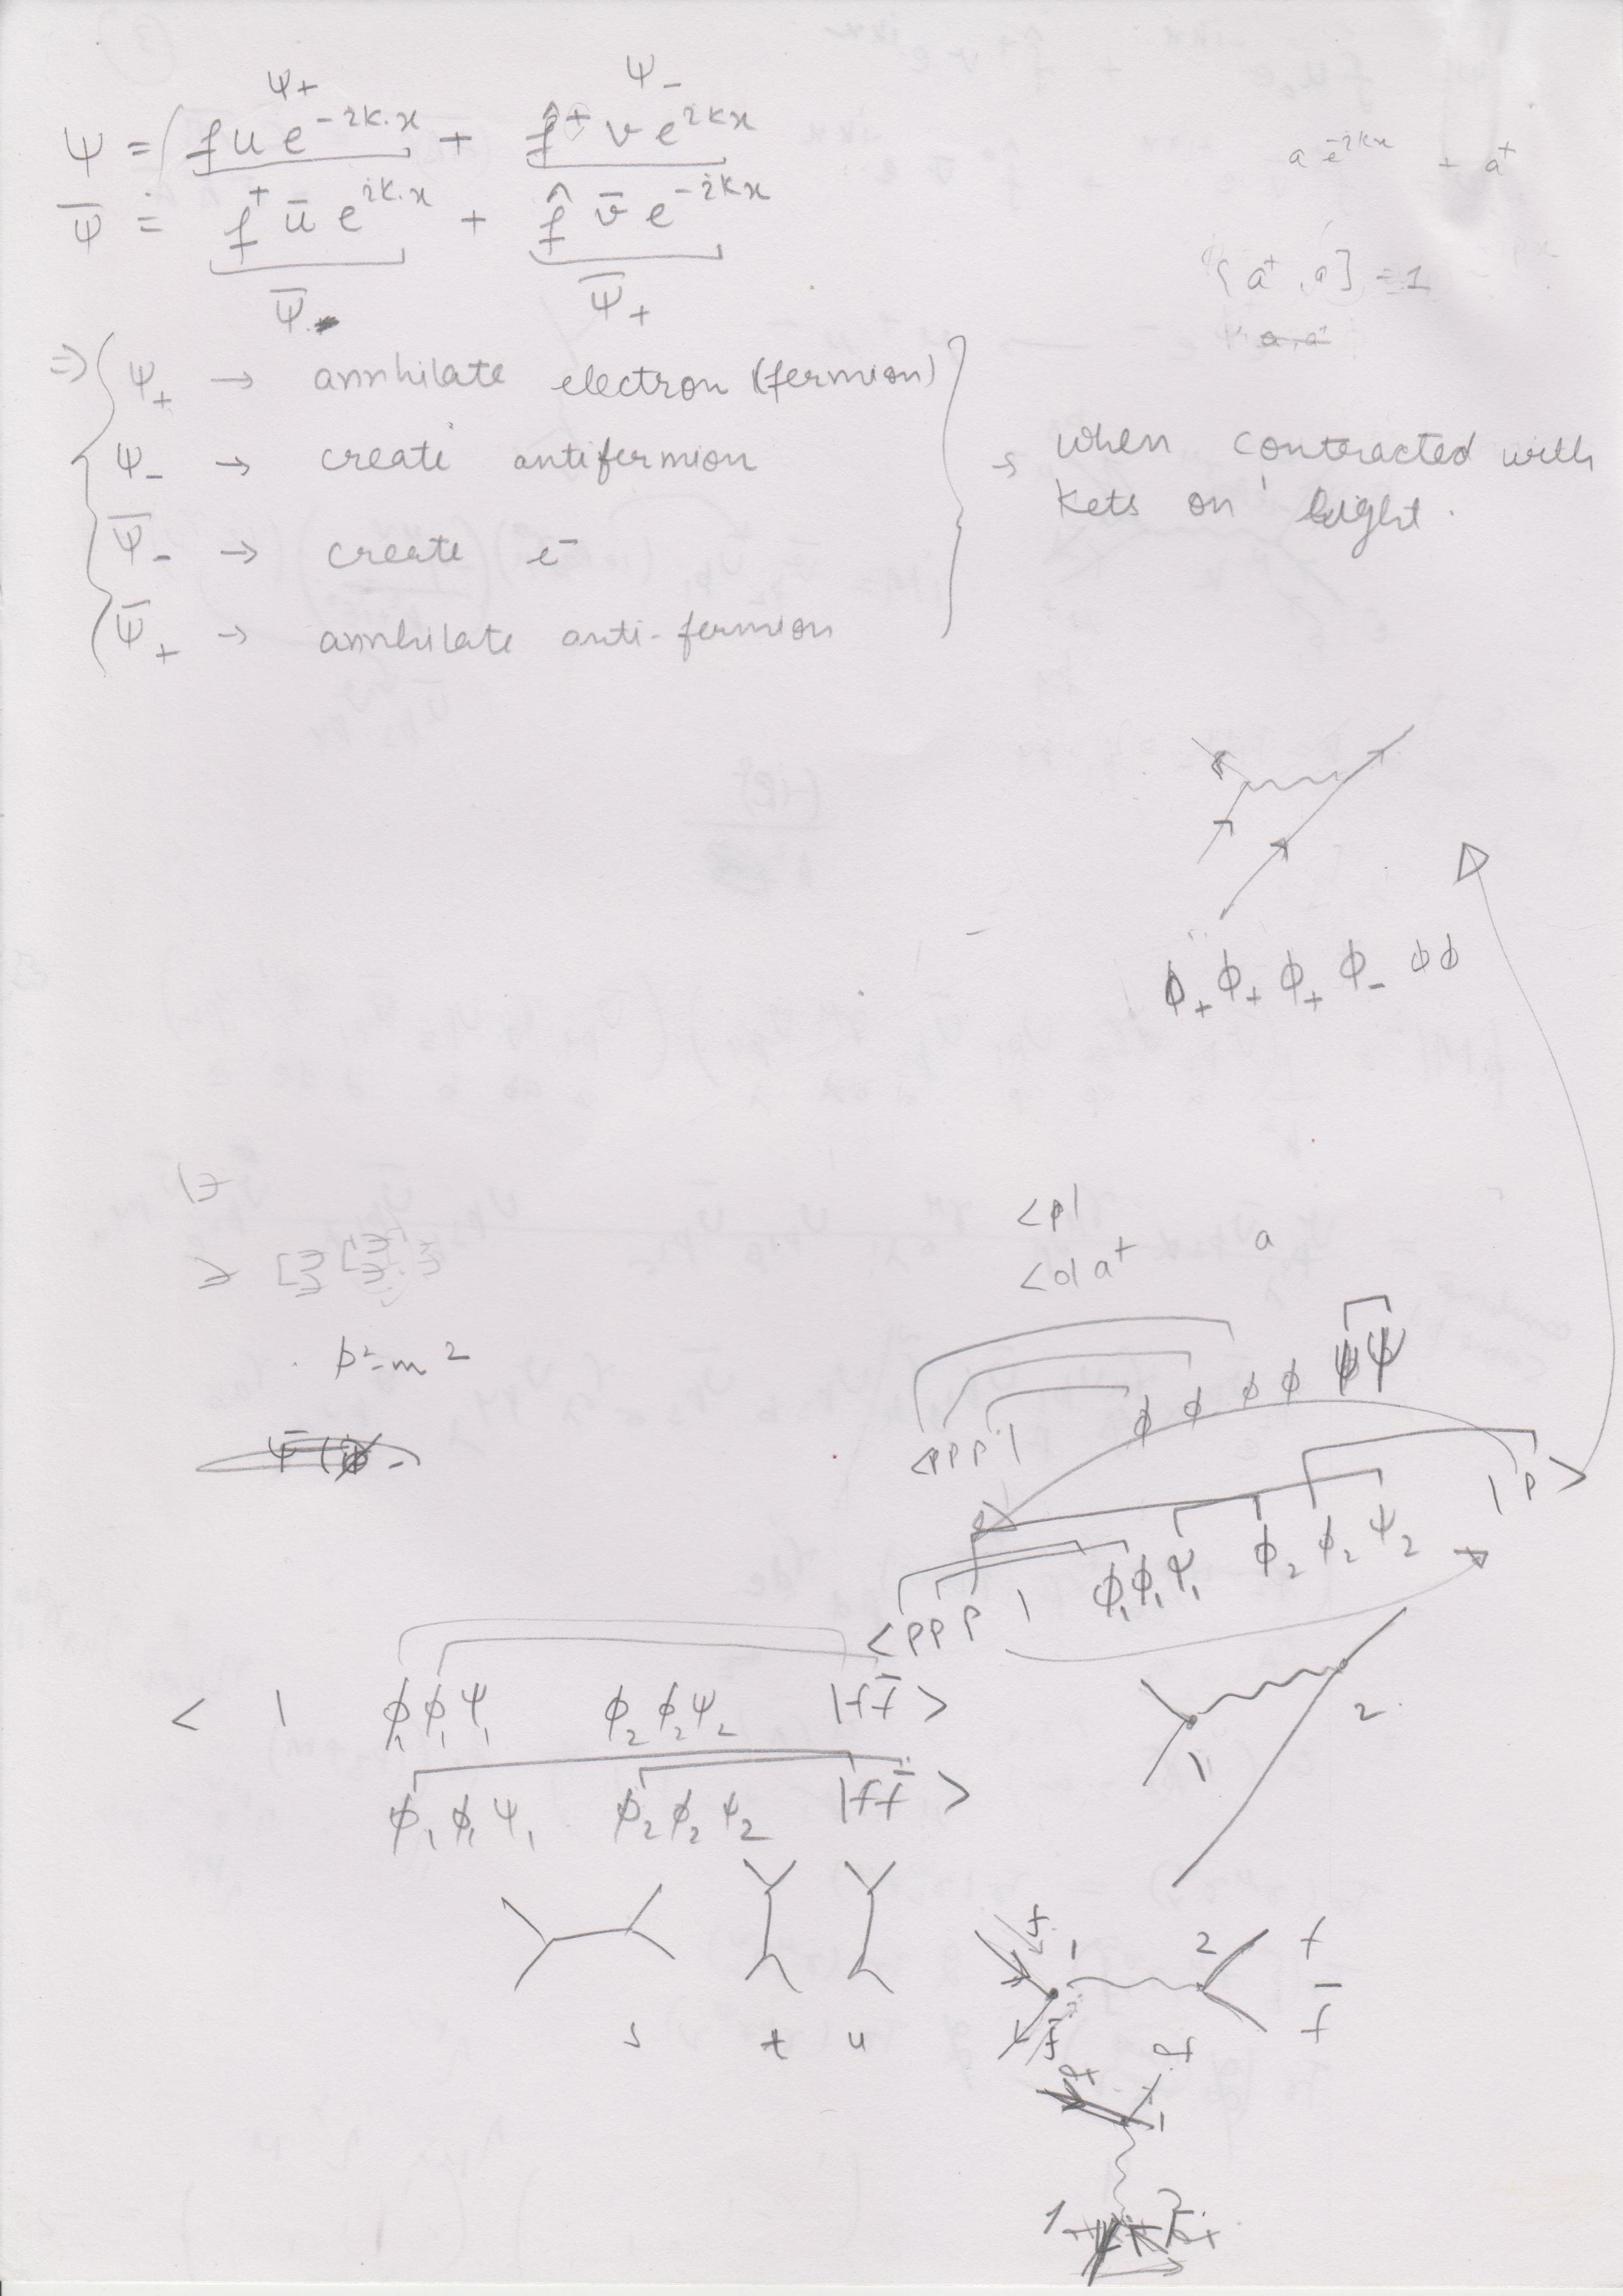 ψ₊ ψ₋
ψ = ∫ f u e^{-ik.x} + f̂⁺ v e^{ikx}
ψ̄ = f⁺ ū e^{ik.x} + f̂ v̄ e^{-ikx}
ψ̄₋ ψ̄₊
a e^{-ikx} + a⁺
[a⁺, a] = 1
a, a⁺
⇒ ψ₊ → annhilate electron (fermion)
ψ₋ → create antifermion
ψ̄₋ → create e⁻
ψ̄₊ → annhilate anti-fermion
→ when conteracted with
kets on right.
ϕ₊ ϕ₊ ϕ₊ ϕ₋ ϕ ϕ
<p|
<0| a⁺ a
p² = m²
<ppp| ϕ ϕ ϕ ϕ ψ ψ
<ppp | ϕ₁ ϕ₁ ψ₁ ϕ₂ ϕ₂ ψ₂ | p >
< | ϕ₁ ϕ₁ ψ₁ ϕ₂ ϕ₂ ψ₂ |f f̄ >
ϕ₁ ϕ₁ ψ₁ ϕ₂ ϕ₂ ψ₂ |f f̄ >
1 2
s t u
f 1 2 f
f̄ f̄
1